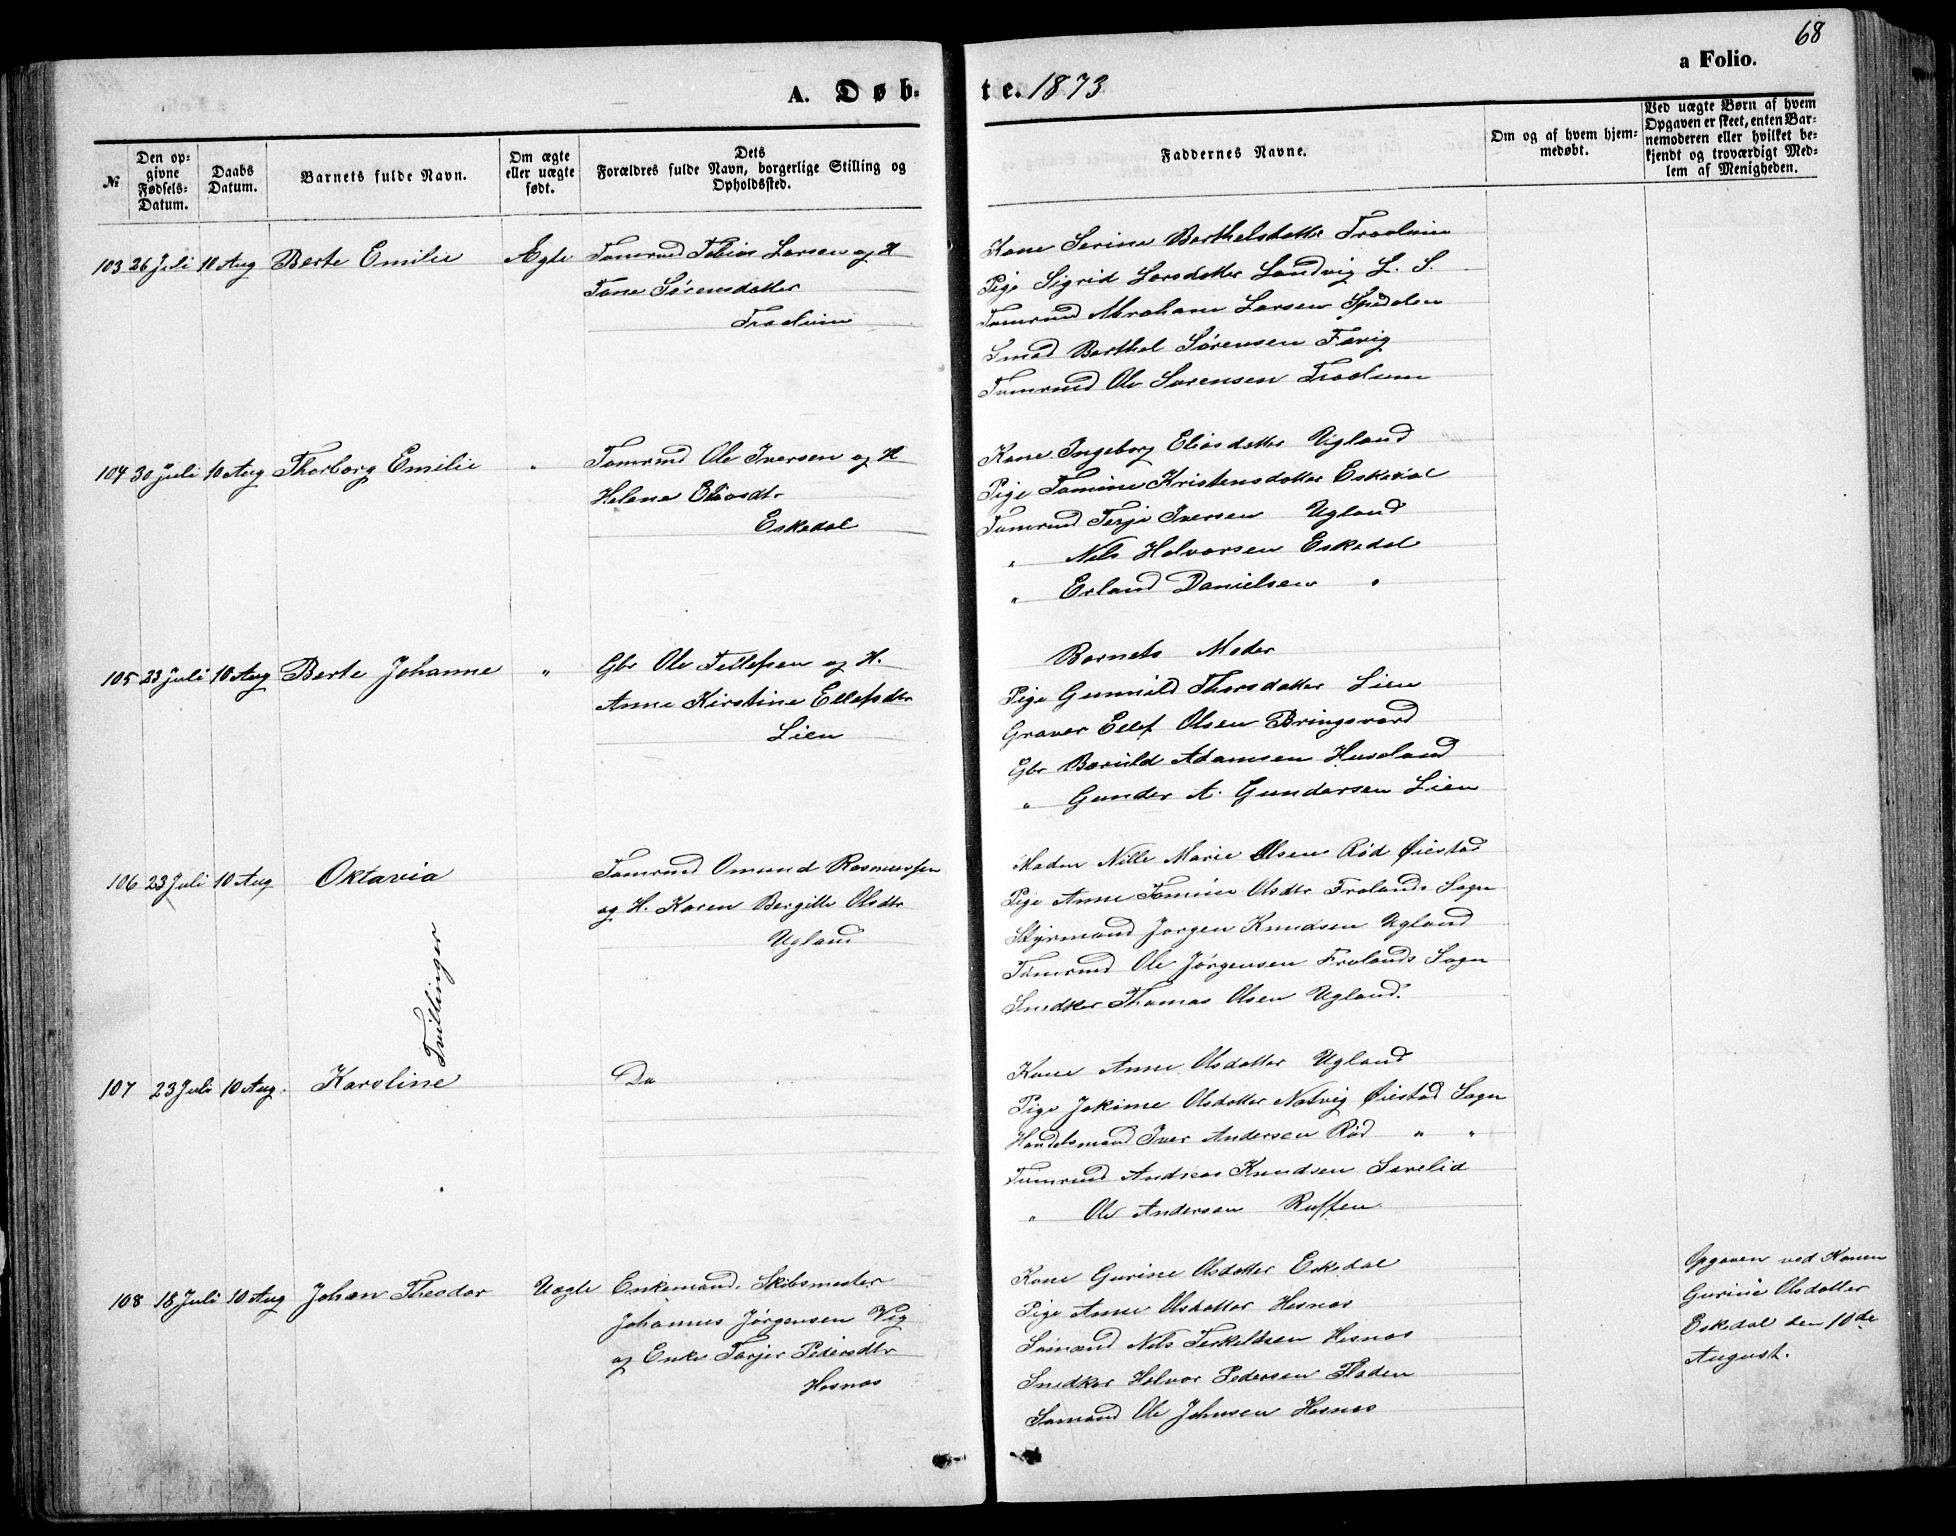 68
A. Døb-
te. 1873
a Folio.
№
Den op-
givne
Fødsels-
Datum.
Daabs
Datum.
Barnets fulde Navn.
Om ægte
eller uægte
født.
Dets
Forældres fulde Navn, borgerlige Stilling og
Opholdssted.
Faddernes Navne.
Om og af hvem hjem-
medøbt.
Ved uægte Børn af hvem
Opgaven er skeet, enten Bar-
nemoderen eller hvilket be-
kjendt og troværdigt Med-
lem af Menigheden.
103 26 Juli 10 Aug Berte Emilie Ægte Tømrmd Tobias Larsen og H
Tone Sørensdatter
Kone Serine Berthelsdatter
Pige Sigrid Larsdatter Landvig L. S.
Tømrmd Abraham Larsen
Smed Berthel Sørensen Fevig
Tømrmd Ole Sørensen
104 30 Juli 10 Aug Thorborg Emilie " Tømrmd Ole Iversen og H
Helene Eliasdtr
Eskedal
Kone Ingeborg Eliasdatter Ugland
Pige Tomine Kristensdatter Eskedal
Tømrmd Terje Iversen Ugland
" Nels Halvorsen Eskedal
" Erland Danielsen "
105 23 Juli 10 Aug Berte Johanne " Gbr Ole Tellefsen og H.
Anne Kirstine Ellefsdtr
Lien
Barnets Moder
Pige Gunnild Thorsdatter Lien
Graver Ellef Olsen Bringsverd
Gbr Børuld Adamsen Huseland
" Gunder A. Gundersen Lien
106 23 Juli 10 Aug Oktavia Tømrmd Omund Rasmussen
og H. Karen Bergitte Olsdtr
Ugland
Tvillinger
Maden Nille Marie Olsen Rød Øiestad
Pige Anne Tomine Olsdtr Frolands Sogn
Styrmand Jørgen Knudsen Ugland
Tømrmd Ole Jørgensen Frolands Sogn
Snedker Thomas Olsen Ugland.
107 23 Juli 10 Aug. Karoline Do
Kone Anne Olsdatter Ugland
Pige Jokime Olsdatter Natvig Øiestad Sogn
Handelsmand Iver Andersen Rød " "
Tømrmd Andreas Knudsen Sævelid
" Ole Andersen
108 18 Juli 10 Aug Johan Theodor Uægte Enkemand, Skibsmester
Johannes Jørgensen Vig
og Enke Torjer Pedersdtr
Hesnæs
Kone Gurine Olsdatter Eskedal
Pige Anne Olsdatter Hesnæs
Sømand Nels Terkeldsen Hesnæs
Snedker Halvor Pedersen Fladen
Sømand Ole Johnsen Hesnæs
Opgaven ved Konen
Gurine Olsdatter
Eskedal den 10de
August.